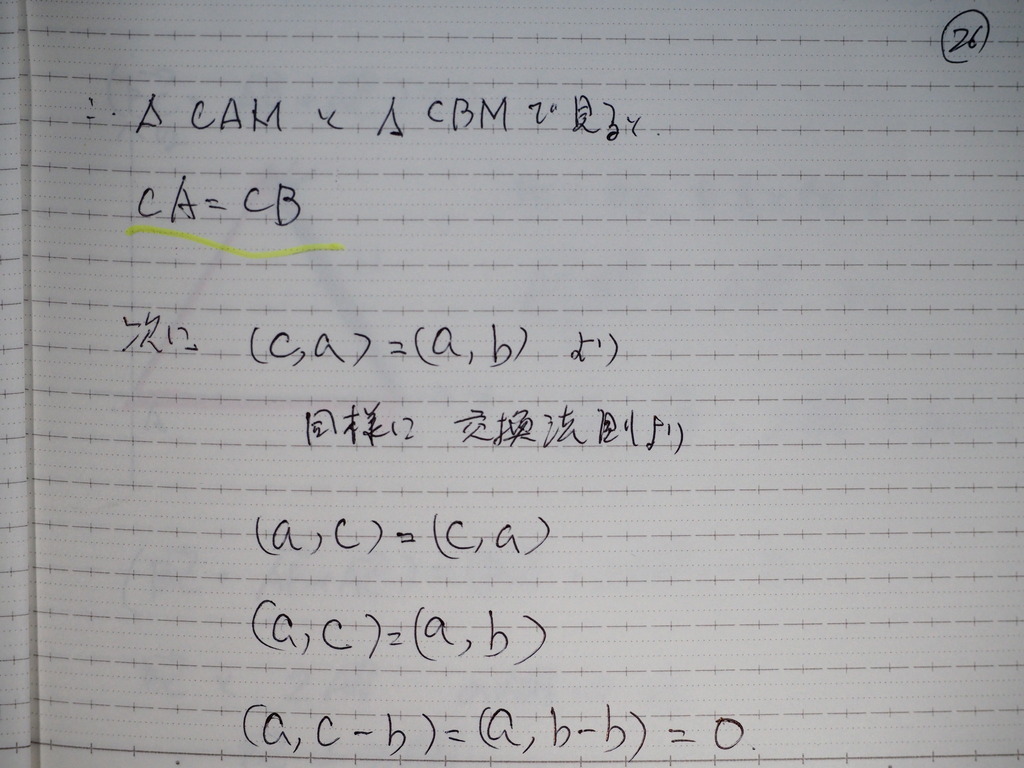 26
∴ △CAMと△CBMで見ると.
CA=CB
次に (c,a)=(a,b) より
同様に 交換法則より
(a,c)=(c,a)
(a,c)=(a,b)
(a,c-b)=(a,b-b)=0.